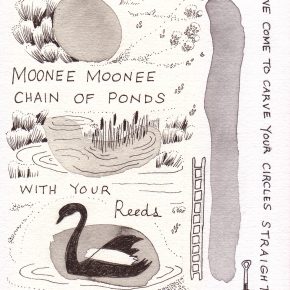 MOONEE MOONEE
CHAIN OF PONDS
WITH YOUR
Reeds
VE COME TO CARVE YOUR CIRCLES STRAIGHT